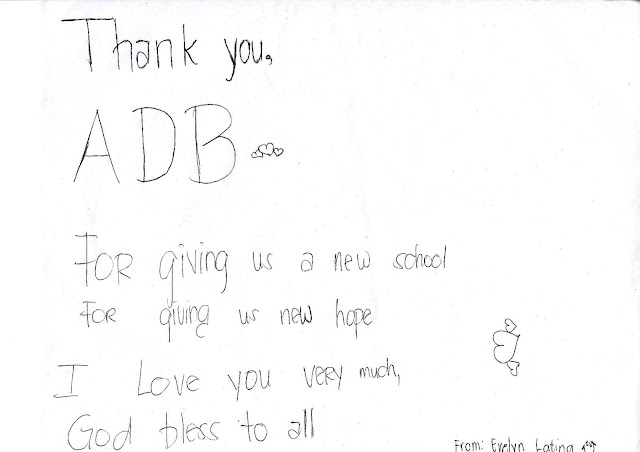 Thank you,
ADB
FOR giving us a new school
FOR giving us new hope
I Love you very much,
God bless to all
From: Evelyn Lating